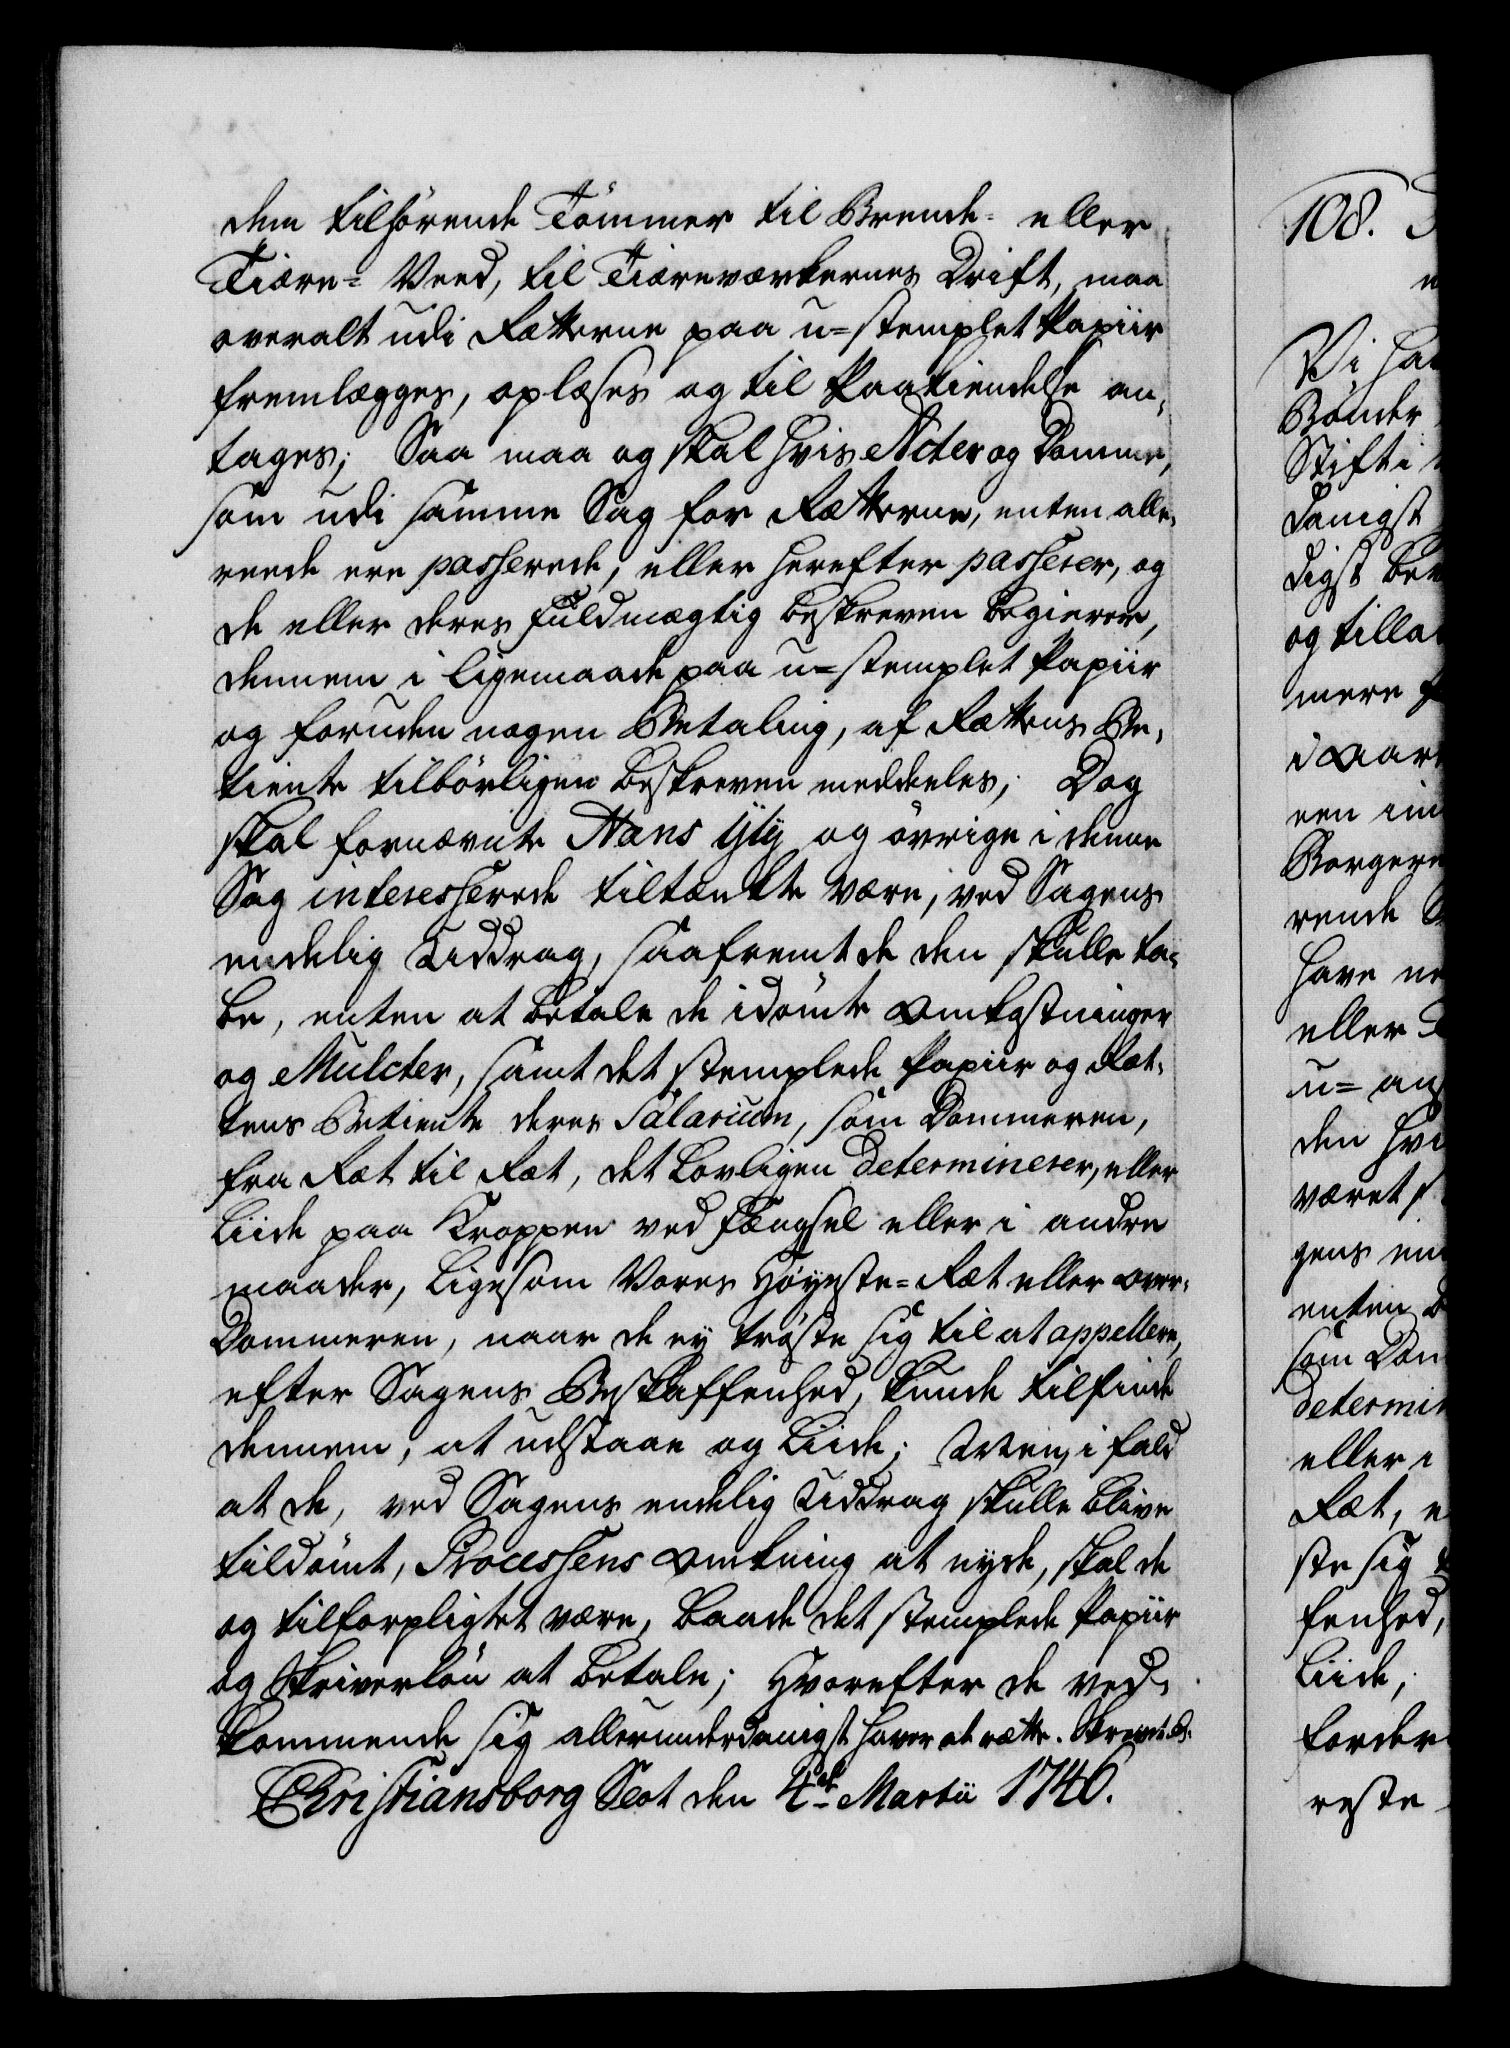 dem tilhörende Tömmer til Brende- eller
Tiære= Veed, til Tiæreværkernes Drift, maa
overalt udi Rætterne paa u=stemplet Papiir
fremlægges, oplæses og til Paakiendelse an-
tages; Saa maa og skal hvis Acter og Domme,
som udi samme Sag for Rætterne, enten alle-
reede ere passerede, eller herefter passerer, og
de eller deres Fuldmægtig beskreven begierer,
dennem i ligemaade paa u=stemplet Papiir
og foruden nogen Betaling, af Rættens Be-
tiente tilbörligen beskreven meddeeles; Dog
skal fornævnte Hans og övrige i denne
Sag interesserede tiltænkte være, ved Sagens
endelig Uddrag, saafremt de den skulle ta-
be, enten at betale de idömte Omkostninger
og Mulcter, samt det stemplede Papiir og Ræt-
tens Betiente deres Salarium, som Dommeren,
fra Ræt til Ræt, det Lovligen determinerer, eller
Liide paa Kroppen ved Fængsel eller i andre
maader, ligesom Vores Höyeste=Ræt eller Over-
Dommeren, naar de ey tröste sig til at appellere,
efter Sagens Beskaffenhed, kunde tilfinde
dennem, at udstaae og Liide; Men, i fald
at de, ved Sagens endelig Uddrag skulle blive
tildömt, Processens Omkning at nyde, skal de
og tilforpligtet være, baade det stemplede Papiir
og Skriverlön at betale; Hvorefter de ved-
kommende sig allerunderdanigst haver at rætte.
Christiansborg Slot den 4de Martii 1746.
108.
Vi ha
Bönder
Stift i
danigst
digst be
og tilla
mere
i Aar
een in
Borger
rende
have
eller
u=
den hvi
været
gens en
enten b
som Dom
determin
eller i
Ræt, e
ste sig
fenhed,
Liide;
forder
reste